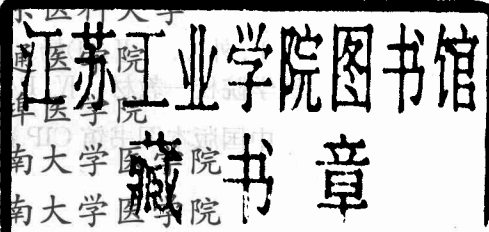 京医科大学
江苏工业学院图书馆
通医学院
埠医学院
藏书章
南大学医学院
南大学医学院